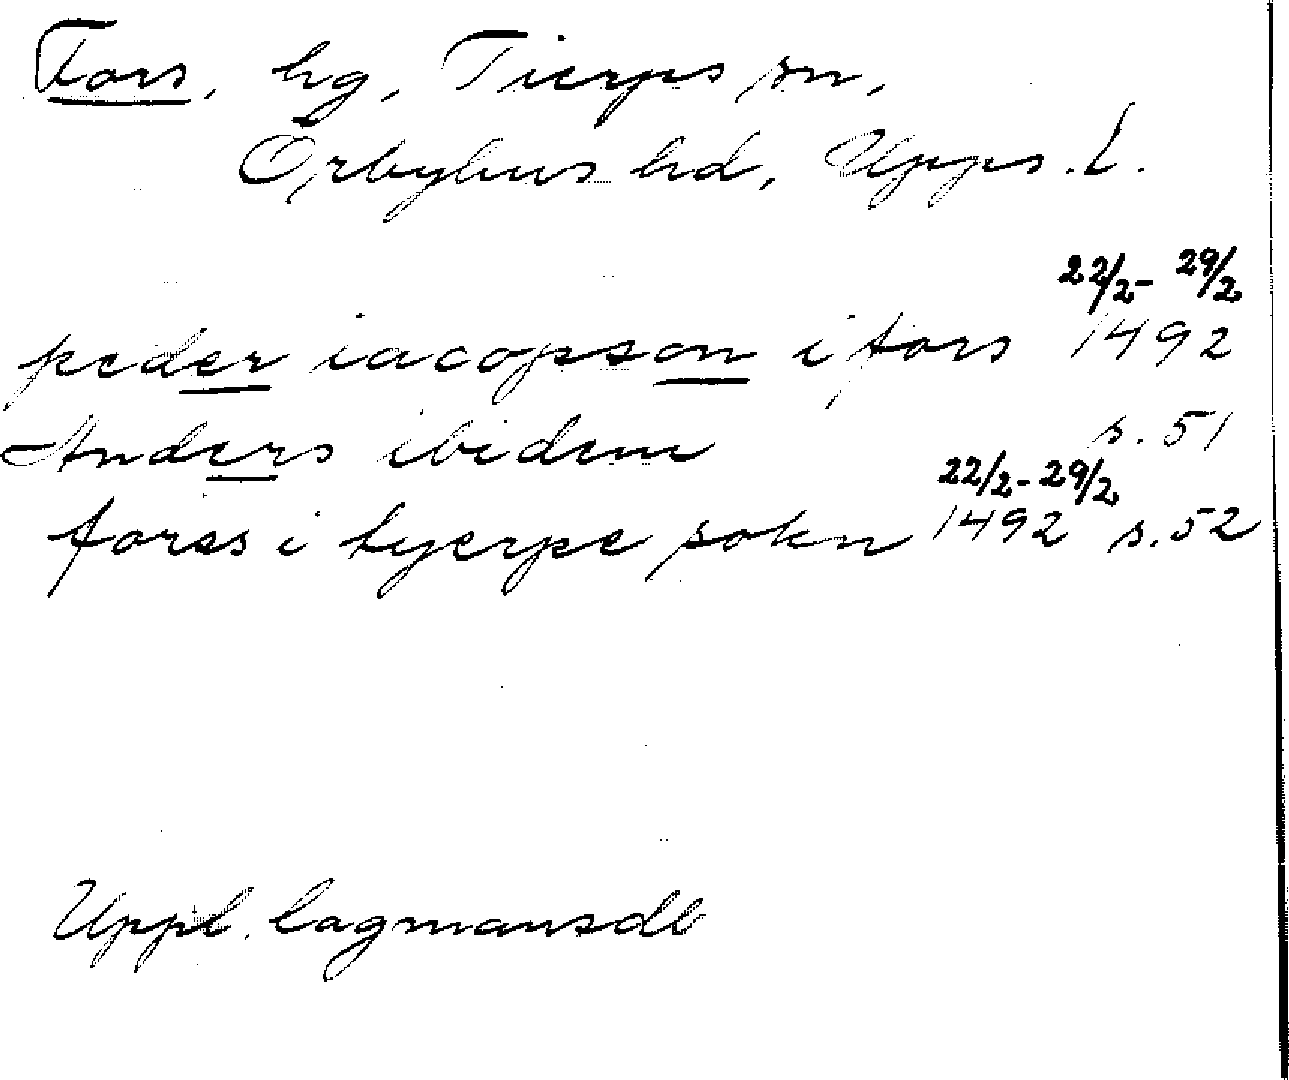 Fors, hg, Tierps sn,
Örbyhus hd, Upps. l.
22/2- 29/2
peder iacopson i fors 1492
Anders ibidem s. 51
22/2- 29/2
forss i tyerpe sokn 1492 s. 52
Uppl. lagmansdb